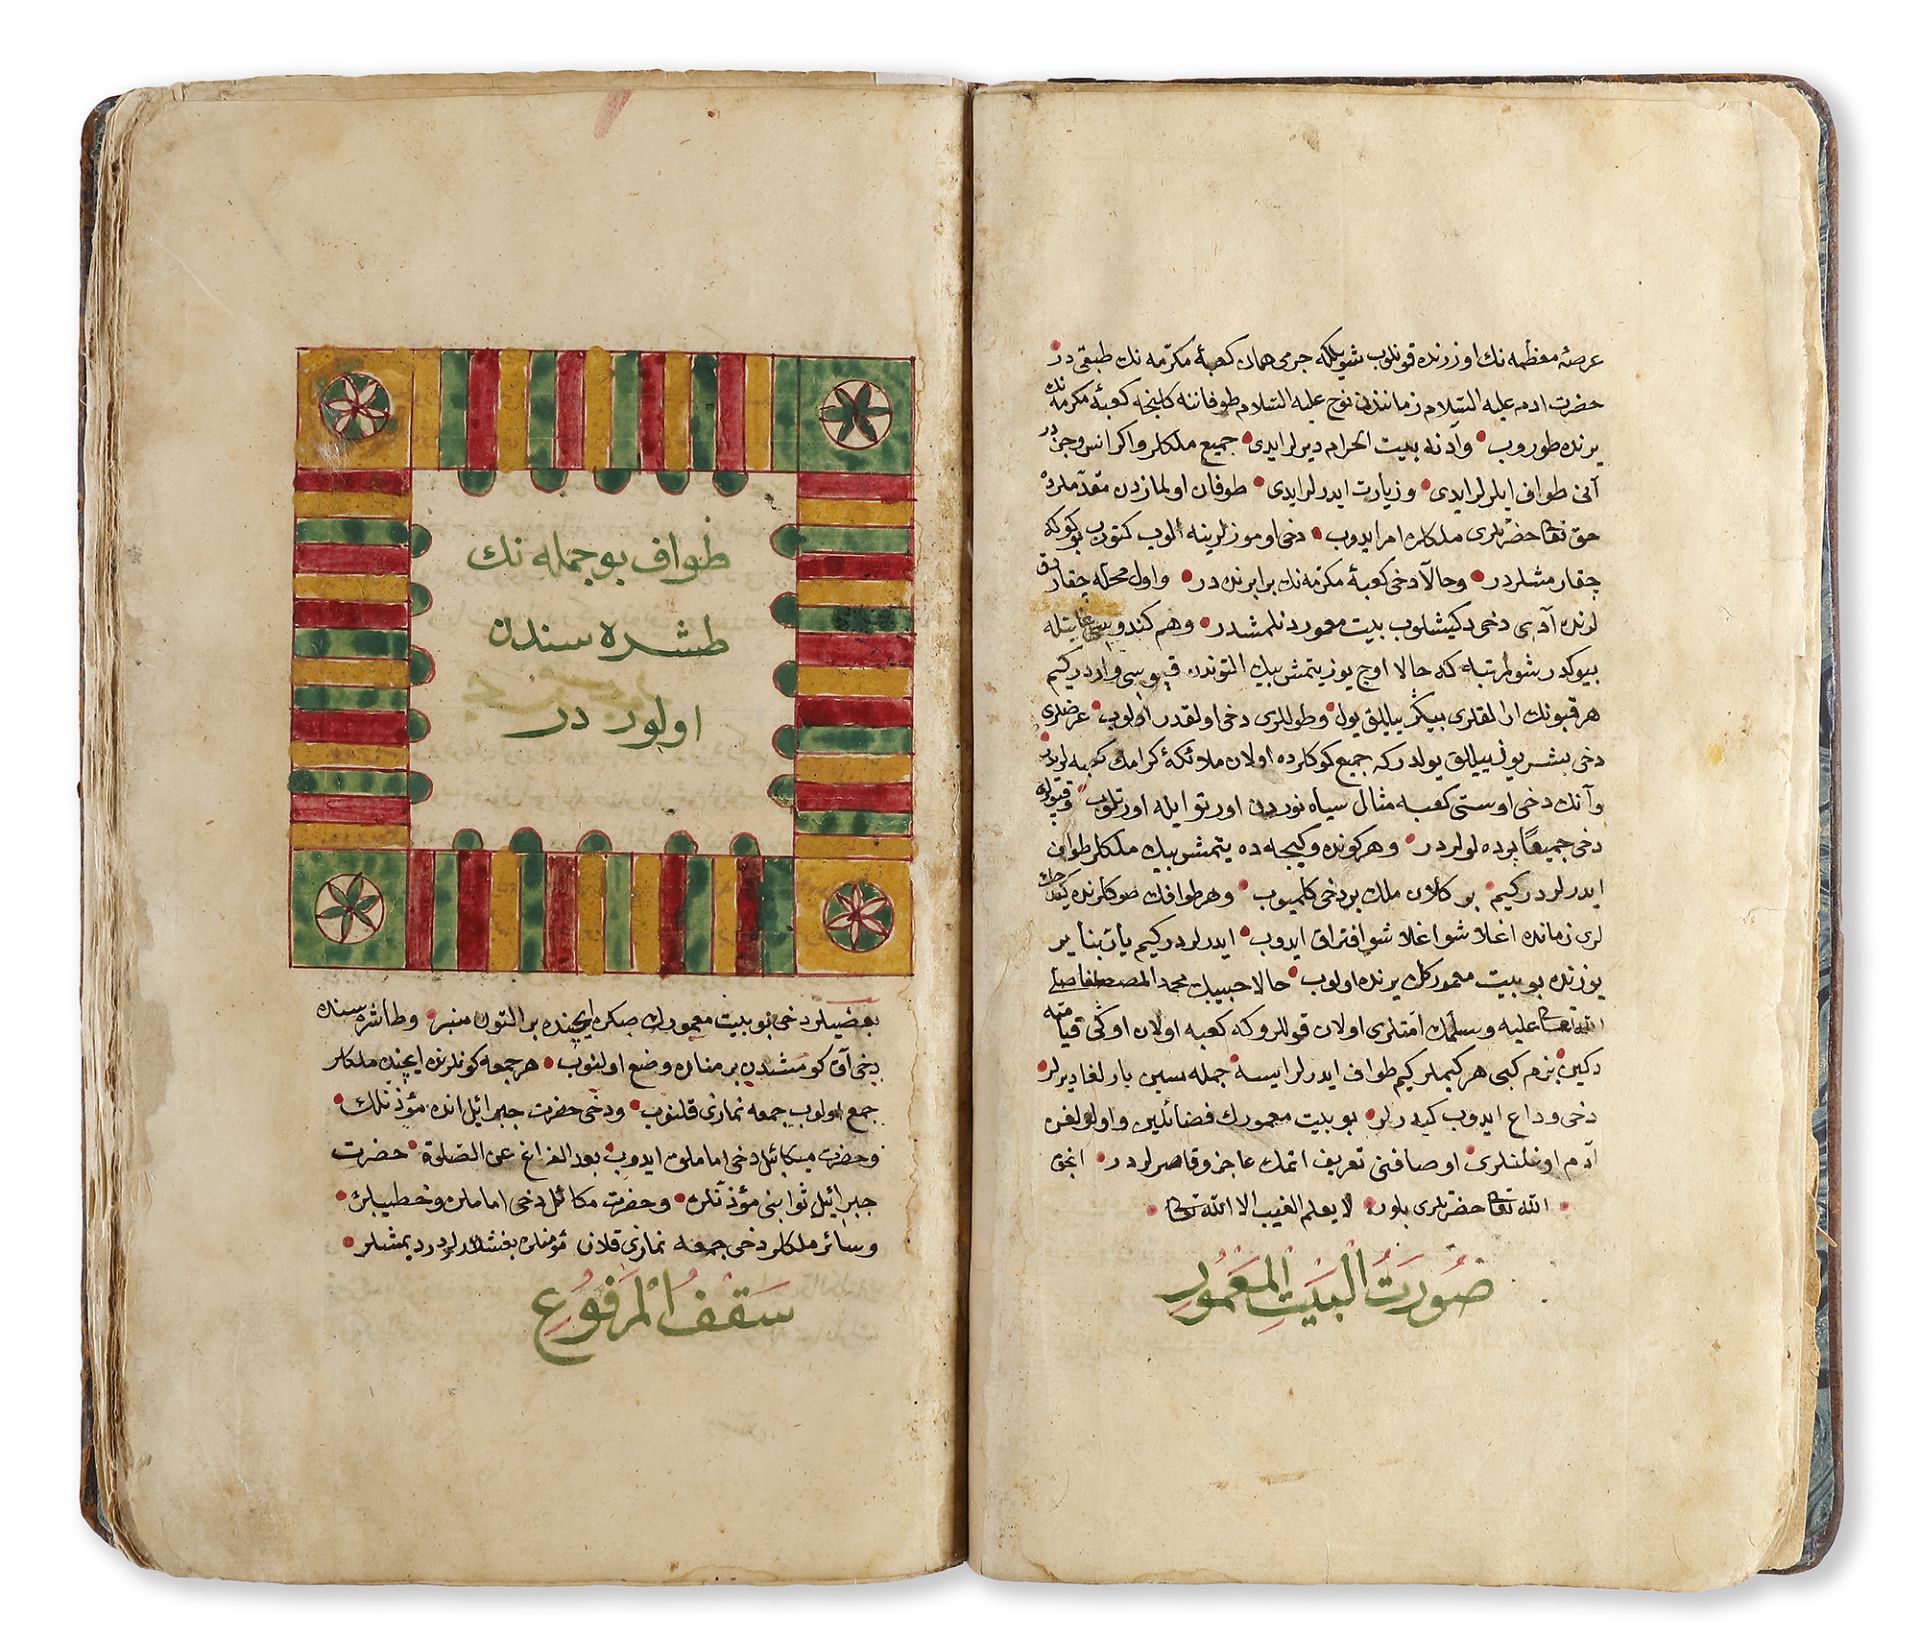 عرصۀ معظمه نك اوزرنده قونلوب شويلكه جرمى همان كعبۀ مكرّمه نك طبقى در
حضرت ادم عليه السّلام زمانندن نوح عليه السّلام طوفاننه كلنجه كعبۀ مكرمه نك
يرنده طوروب وآدنه بيت الحرام ديرلرايدى جميع ملكلر واكر انس وجن در
آنى طواف ايلرلرايدى وزيارت ايدرلرايدى طوفان اولمازدن مقدّملرده
حق تعالى حضرتلرى ملكلره امر ايدوب دخى اوموزلرينه الوب كتوروب كوكه
چقارمشلردر وحالآ دخى كعبۀ مكرّمه نك برابرنده در واول محله چقار
لرنده آدى دخى دكيشلوب بيت معمور دنلمشدر وهم كندوسى غايتله
بيوكدر شولمرتبه كه حالا اوچ يوز يتمش بيك التوندن قپوسى واردركيم
هر قپونك ارالقلرى بيكر ييللق يول وطوللرى دخى اولقدر اولوب عرضلرى
دخى بشر يوز ييللق يولدركه جميع كوكلرده اولان ملائكۀ كرامك كعبه لريدر
وآنك دخى اوستى كعبه مثال سياه نوردن اورتو ايله اورتلوب وقپولرى
دخى جميعًا پرده لولردر وهر كونده وكيجه ده يتمش بيك ملكلر طواف
ايدرلردركيم بر كلان ملك بر دخى كلميوب وهر طوافك صوكلرنده كيده جك
لرى زمانده اغلاشو اغلاشو افتراق ايدوب ايدرلردركيم يا ربنا ير
يوزنده بو بيت معمورك يرنده اولوب حالا حبيبك محمد المصطفى صلى
الله تعالى عليه وسلمك امتلرى اولان قوللروكه كعبه اولان اوكى قيامته
دكين بزم كبى هر كيملر كيم طواف ايدرلرايسه جمله سين يارلغا ديرلر
دخى وداع ايدوب كيدرلر بو بيت معمورك فضائلين واولولغن
آدم اوغلنلرى اوصافنى تعريف اتمك عاجز وقاصرلردر انجق
الله تعالى حضرتلرى بلور لا يعلم الغيب الا الله تعالى
صُورَتُ الْبَيْتِ الْمَعْمُورِ
طواف بو جمله نك
طشره سندن
اولور در
بعضيلر دخى بو بيت معمورك ايچنده بر التون منبر وطاشره سنده
دخى آق كومشدن بر مناره وضع اولنوب هر جمعه كونلرنده ايچنده ملكلر
جمع اولوب جمعه نمازى قلنوب ودخى حضرت جبرائيل انده مؤذنلك
وحضرت ميكائل دخى اماملق ايدوب بعد الفراغ عن الصّلوة حضرت
جبرائيل ثوابنى مؤذنلره وحضرت مكائل دخى اماملره وخطيبلره
وسائر ملكلر دخى جمعه نمازى قلان مؤمنلره بغشلارلردر ديمشلر
سَقْفُ الْمَرْفُوعِ